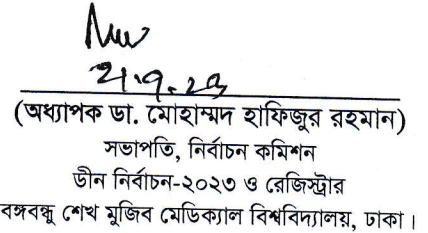 ২১.৭.২৩
(অধ্যাপক ডা. মোহাম্মদ হাফিজুর রহমান)
সভাপতি, নির্বাচন কমিশন
ডীন নির্বাচন-২০২৩ ও রেজিস্ট্রার
বঙ্গবন্ধু শেখ মুজিব মেডিক্যাল বিশ্ববিদ্যালয়, ঢাকা।